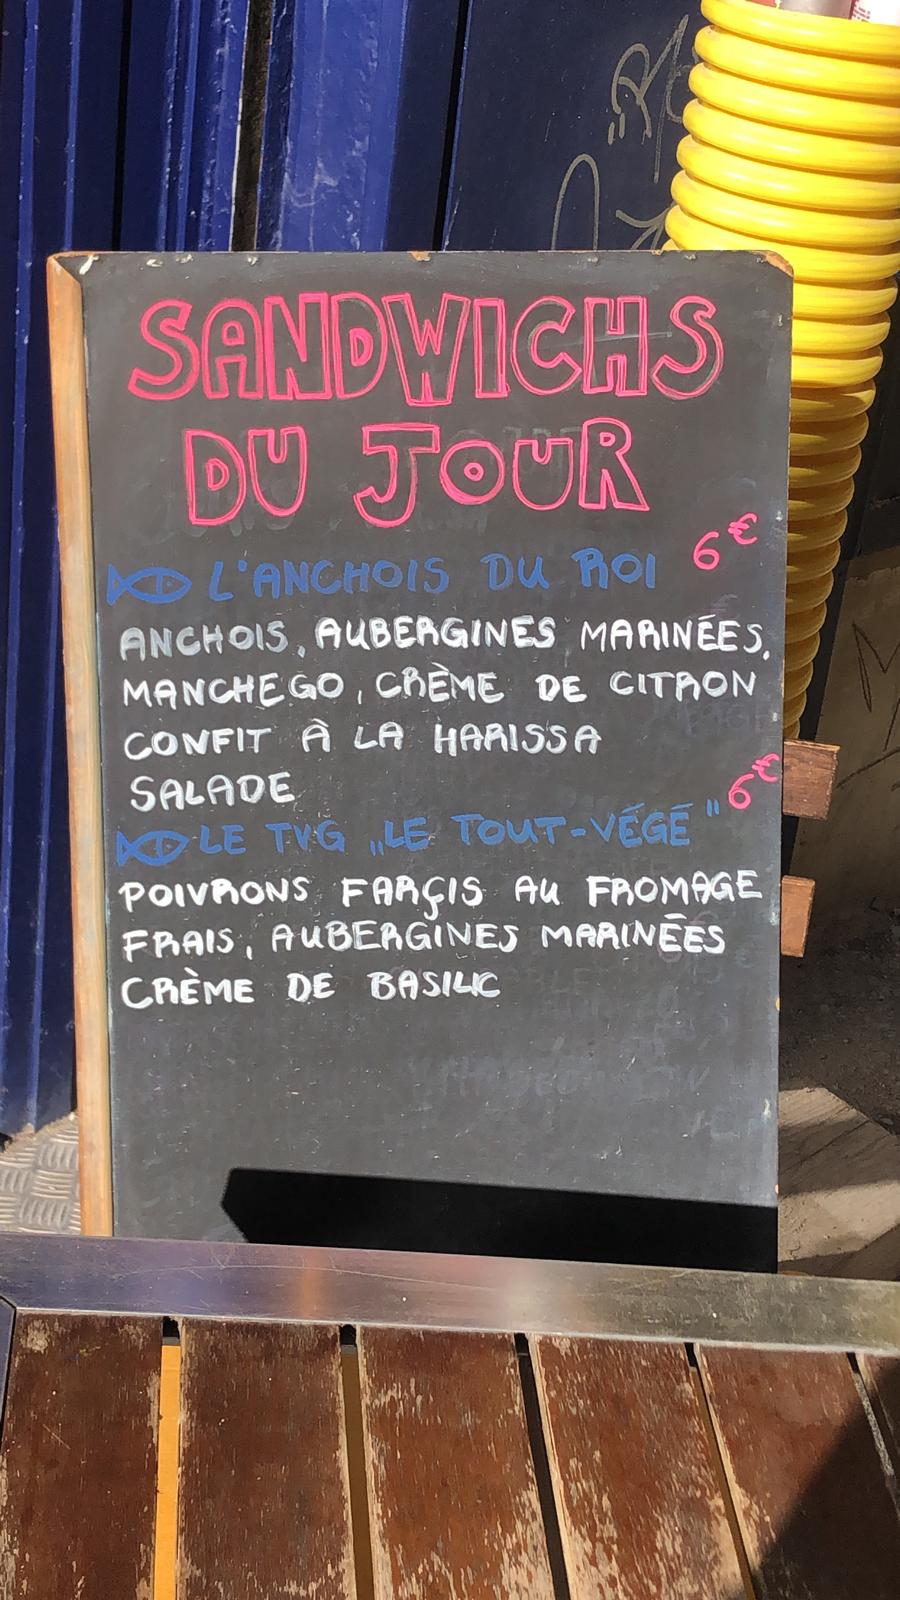 SANDWICHS
DU JOUR
6€
L'ANCHOIS DU ROI
ANCHOIS, AUBERGINES MARINÉES,
MANCHEGO, CRÈME DE CITRON
CONFIT À LA HARISSA
SALADE
6€
LE TVG „LE TOUT-VÉGÉ"
POIVRONS FARÇIS AU FROMAGE
FRAIS, AUBERGINES MARINÉES
CRÈME DE BASILIC